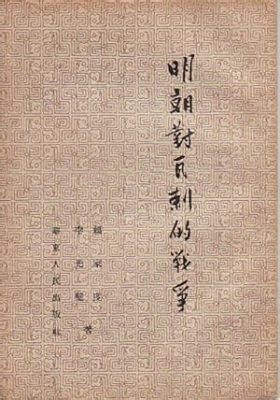 明朝對瓦剌的戰爭
賴家度
李光璧
著
華東人民出版社